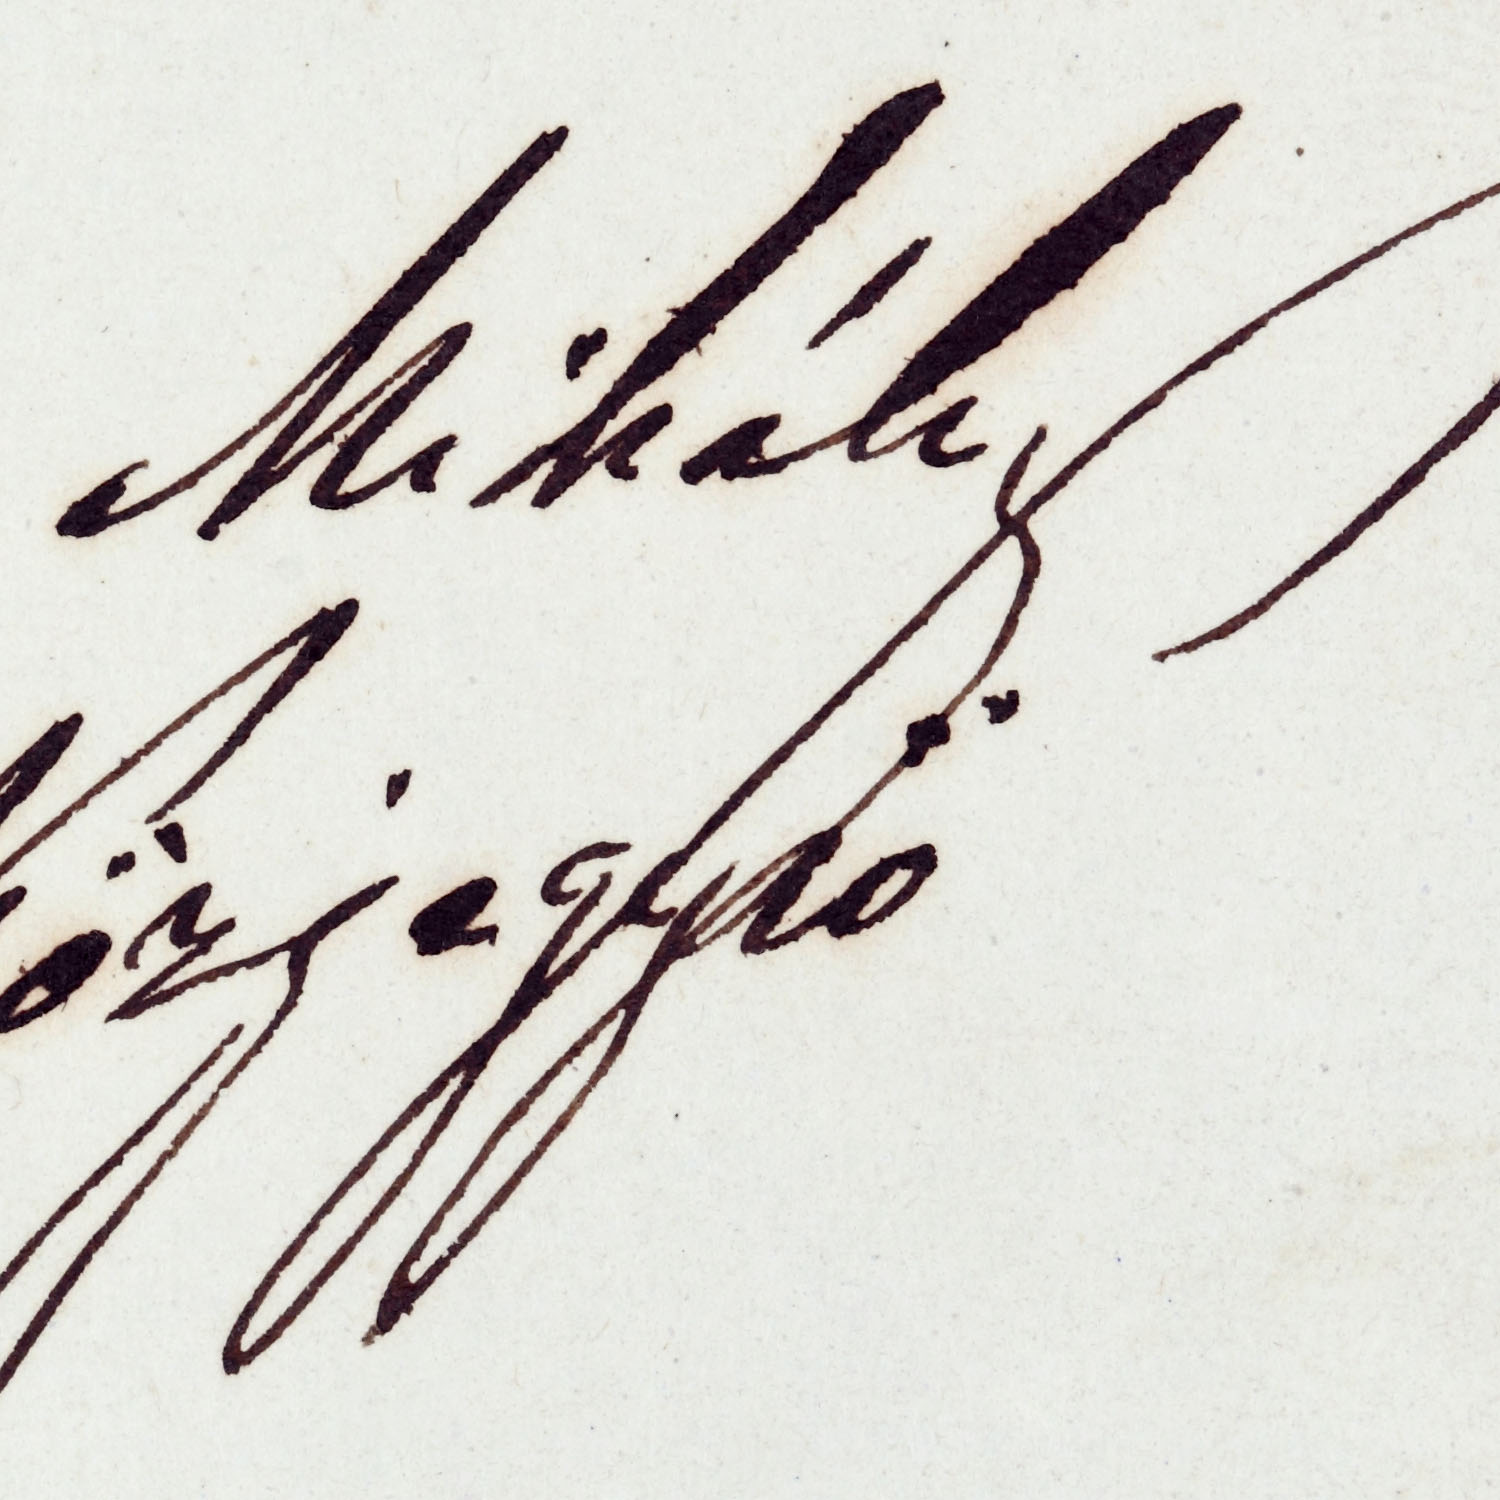 Mihály
közjegyző